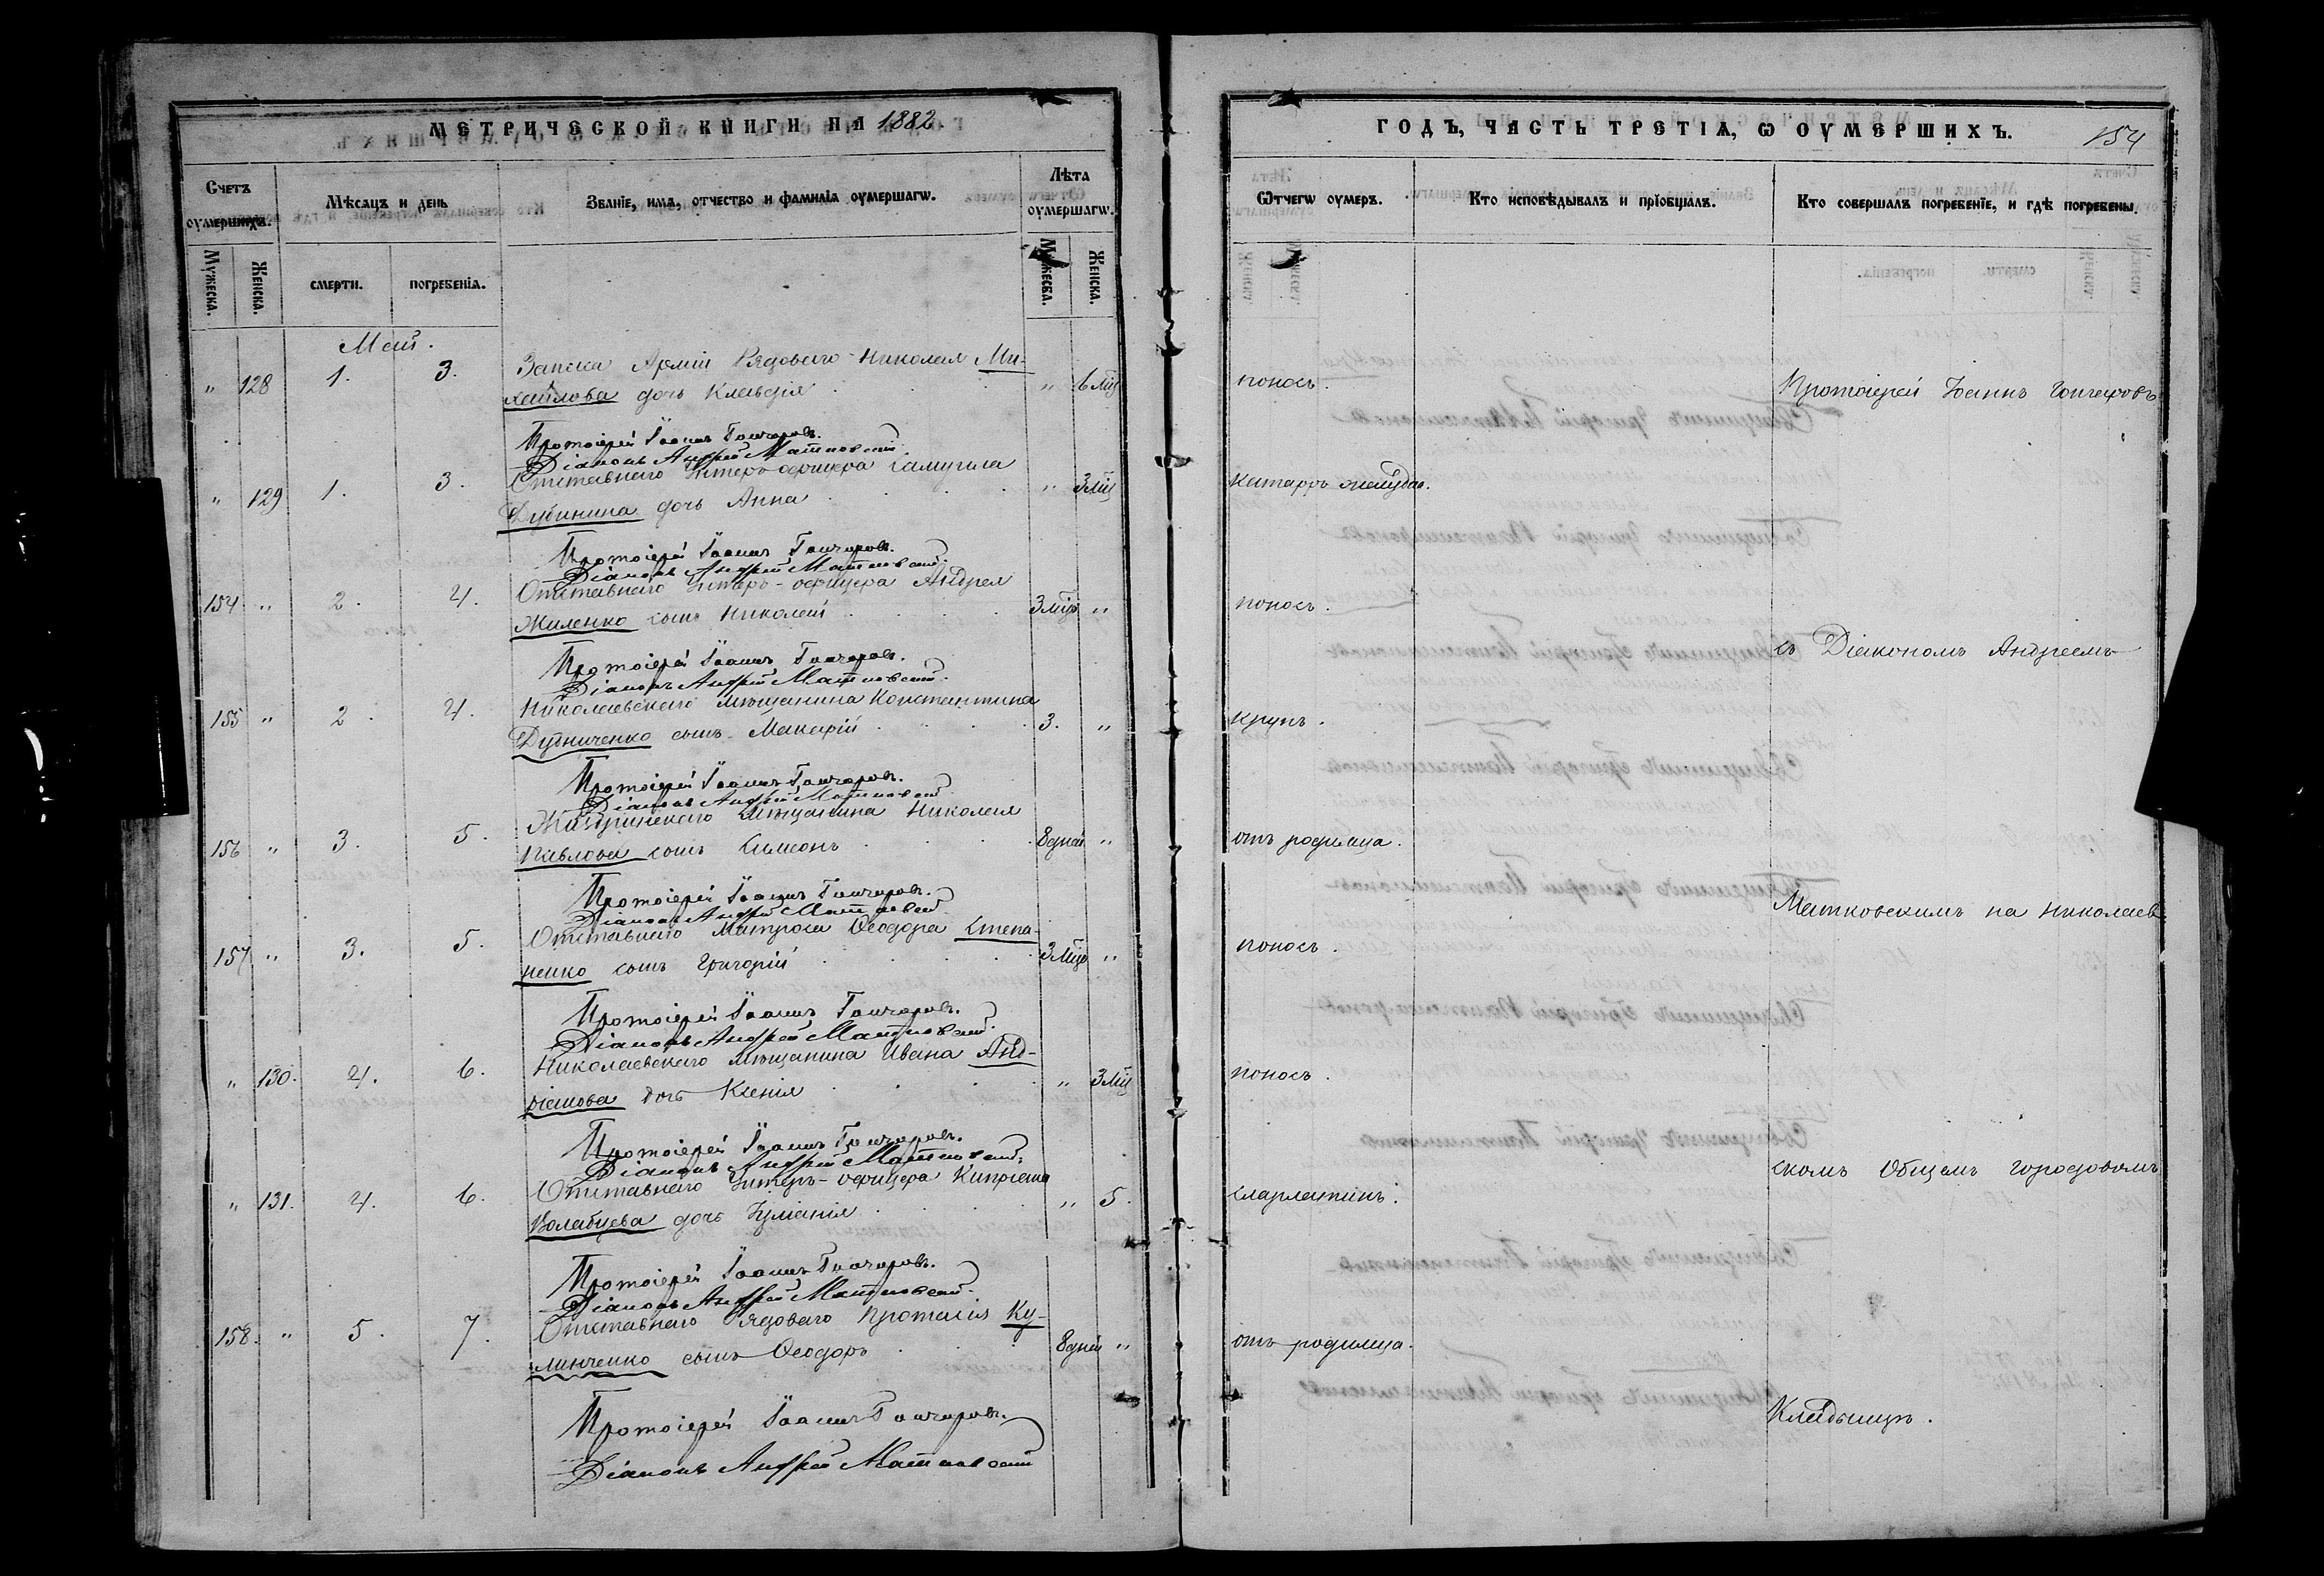 МЕТРИЧЕСКОЙ КНИГИ НА 1882.
Счетъ оумершихъ.
Мѣсяцъ и день
Званіе, имя, отчество и фамилія оумершагѡ.
Лѣта оумершагѡ.
Мужеска.
Женска.
смерти.
погребенія.
Мужеска.
Женска.
Май.
" 128 1. 3. Запаса Арміи Рядоваго Николая Ми-
хайлова дочь Клавдія " 6 мѣс
Протоіерей Іоаннъ Гончаровъ.
Діаконъ Андрей Матковскій
" 129 1. 3. Отставнаго Унтеръ-офицера Самуила
Дубинина дочь Анна " 3 мѣс
Протоіерей Іоаннъ Гончаровъ.
Діаконъ Андрей Матковскій
154 " 2. 4. Отставнаго Унтеръ-офицера Андрея
Жиленко сынъ Николай 3 мѣс "
Протоіерей Іоаннъ Гончаровъ.
Діаконъ Андрей Матковскій
155 " 2. 4. Николаевскаго мѣщанина Константина
Дубниченко сынъ Макарій 3. "
Протоіерей Іоаннъ Гончаровъ.
Діаконъ Андрей Матковскій
156 " 3. 5. Жиздринскаго мѣщанина Николая
Павлова сынъ Симеонъ 8 дней "
Протоіерей Іоаннъ Гончаровъ.
Діаконъ Андрей Матковскій
157 " 3. 5. Отставнаго Матроса Ѳеодора Степа-
ненко сынъ Григорій 3 мѣс "
Протоіерей Іоаннъ Гончаровъ.
Діаконъ Андрей Матковскій
" 130. 4. 6. Николаевскаго мѣщанина Ивана Анд-
ріанова дочь Ксенія " 3 мѣс
Протоіерей Іоаннъ Гончаровъ.
Діаконъ Андрей Матковскій
" 131. 4. 6. Отставнаго Унтеръ-офицера Кипріана
дочь Іуліанія " 5.
Протоіерей Іоаннъ Гончаровъ.
Діаконъ Андрей Матковскій
158. " 5. 7. Отставнаго Рядоваго Протасія Ку-
линченко сынъ Ѳеодоръ 8 дней "
Протоіерей Іоаннъ Гончаровъ.
Діаконъ Андрей Матковскій
ГОДЪ, ЧАСТЬ ТРЕТІЯ, Ѡ ОУМЕРШИХЪ. 154
Ѿчегѡ оумеръ.
Кто исповѣдывалъ и пріобщалъ.
Кто совершалъ погребеніе, и гдѣ погребены.
поносъ.
Протоіерей Іоаннъ Гончаровъ
катарръ желудка.
поносъ.
съ Діакономъ Андреемъ
крупъ.
отъ родимца.
Матковскимъ на Николаев
поносъ.
поносъ.
скомъ Общемъ городовомъ
скарлатинъ.
отъ родимца.
Кладбищѣ.